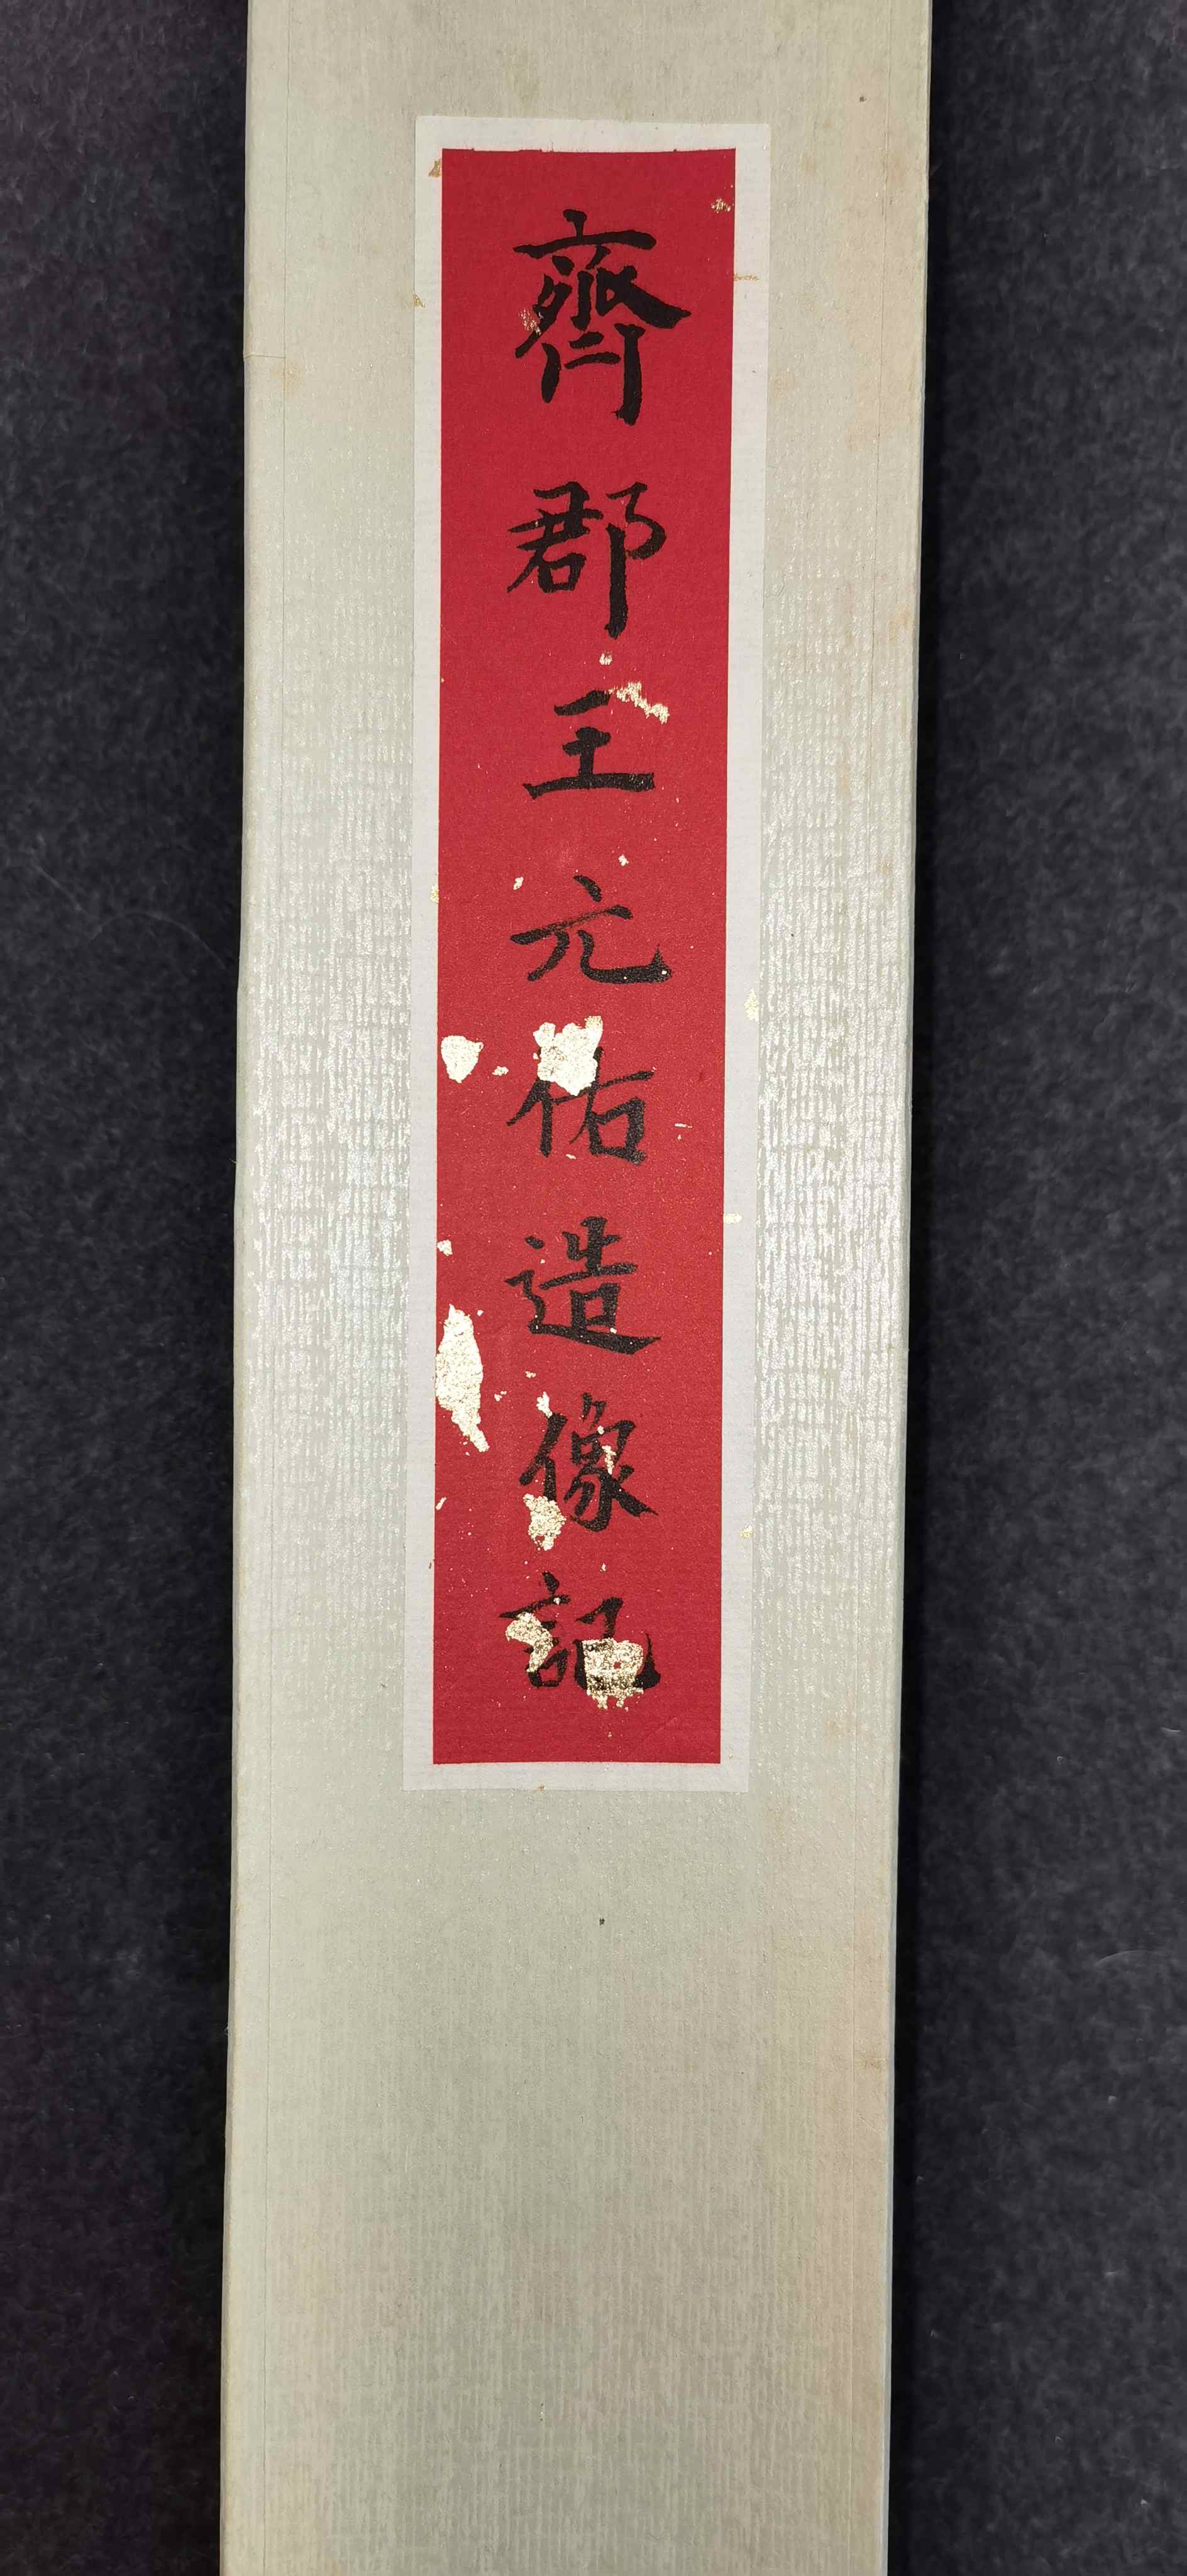 齊郡王元佑造像記